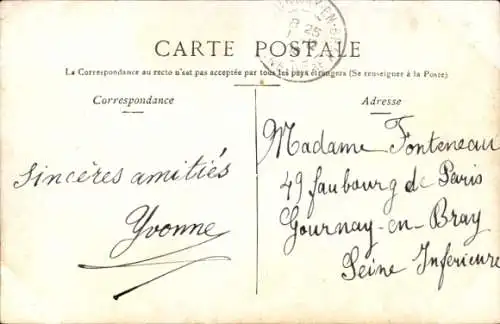 CARTE POSTALE
La Correspondance au recto n'est pas acceptée par tous les pays étrangers (Se renseigner à la Poste)
Correspondance
Sincères amitiés
Yvonne
Adresse
Madame Fonteneau
49 faubourg de Paris
Gournay-en-Bray
Seine Inferieure